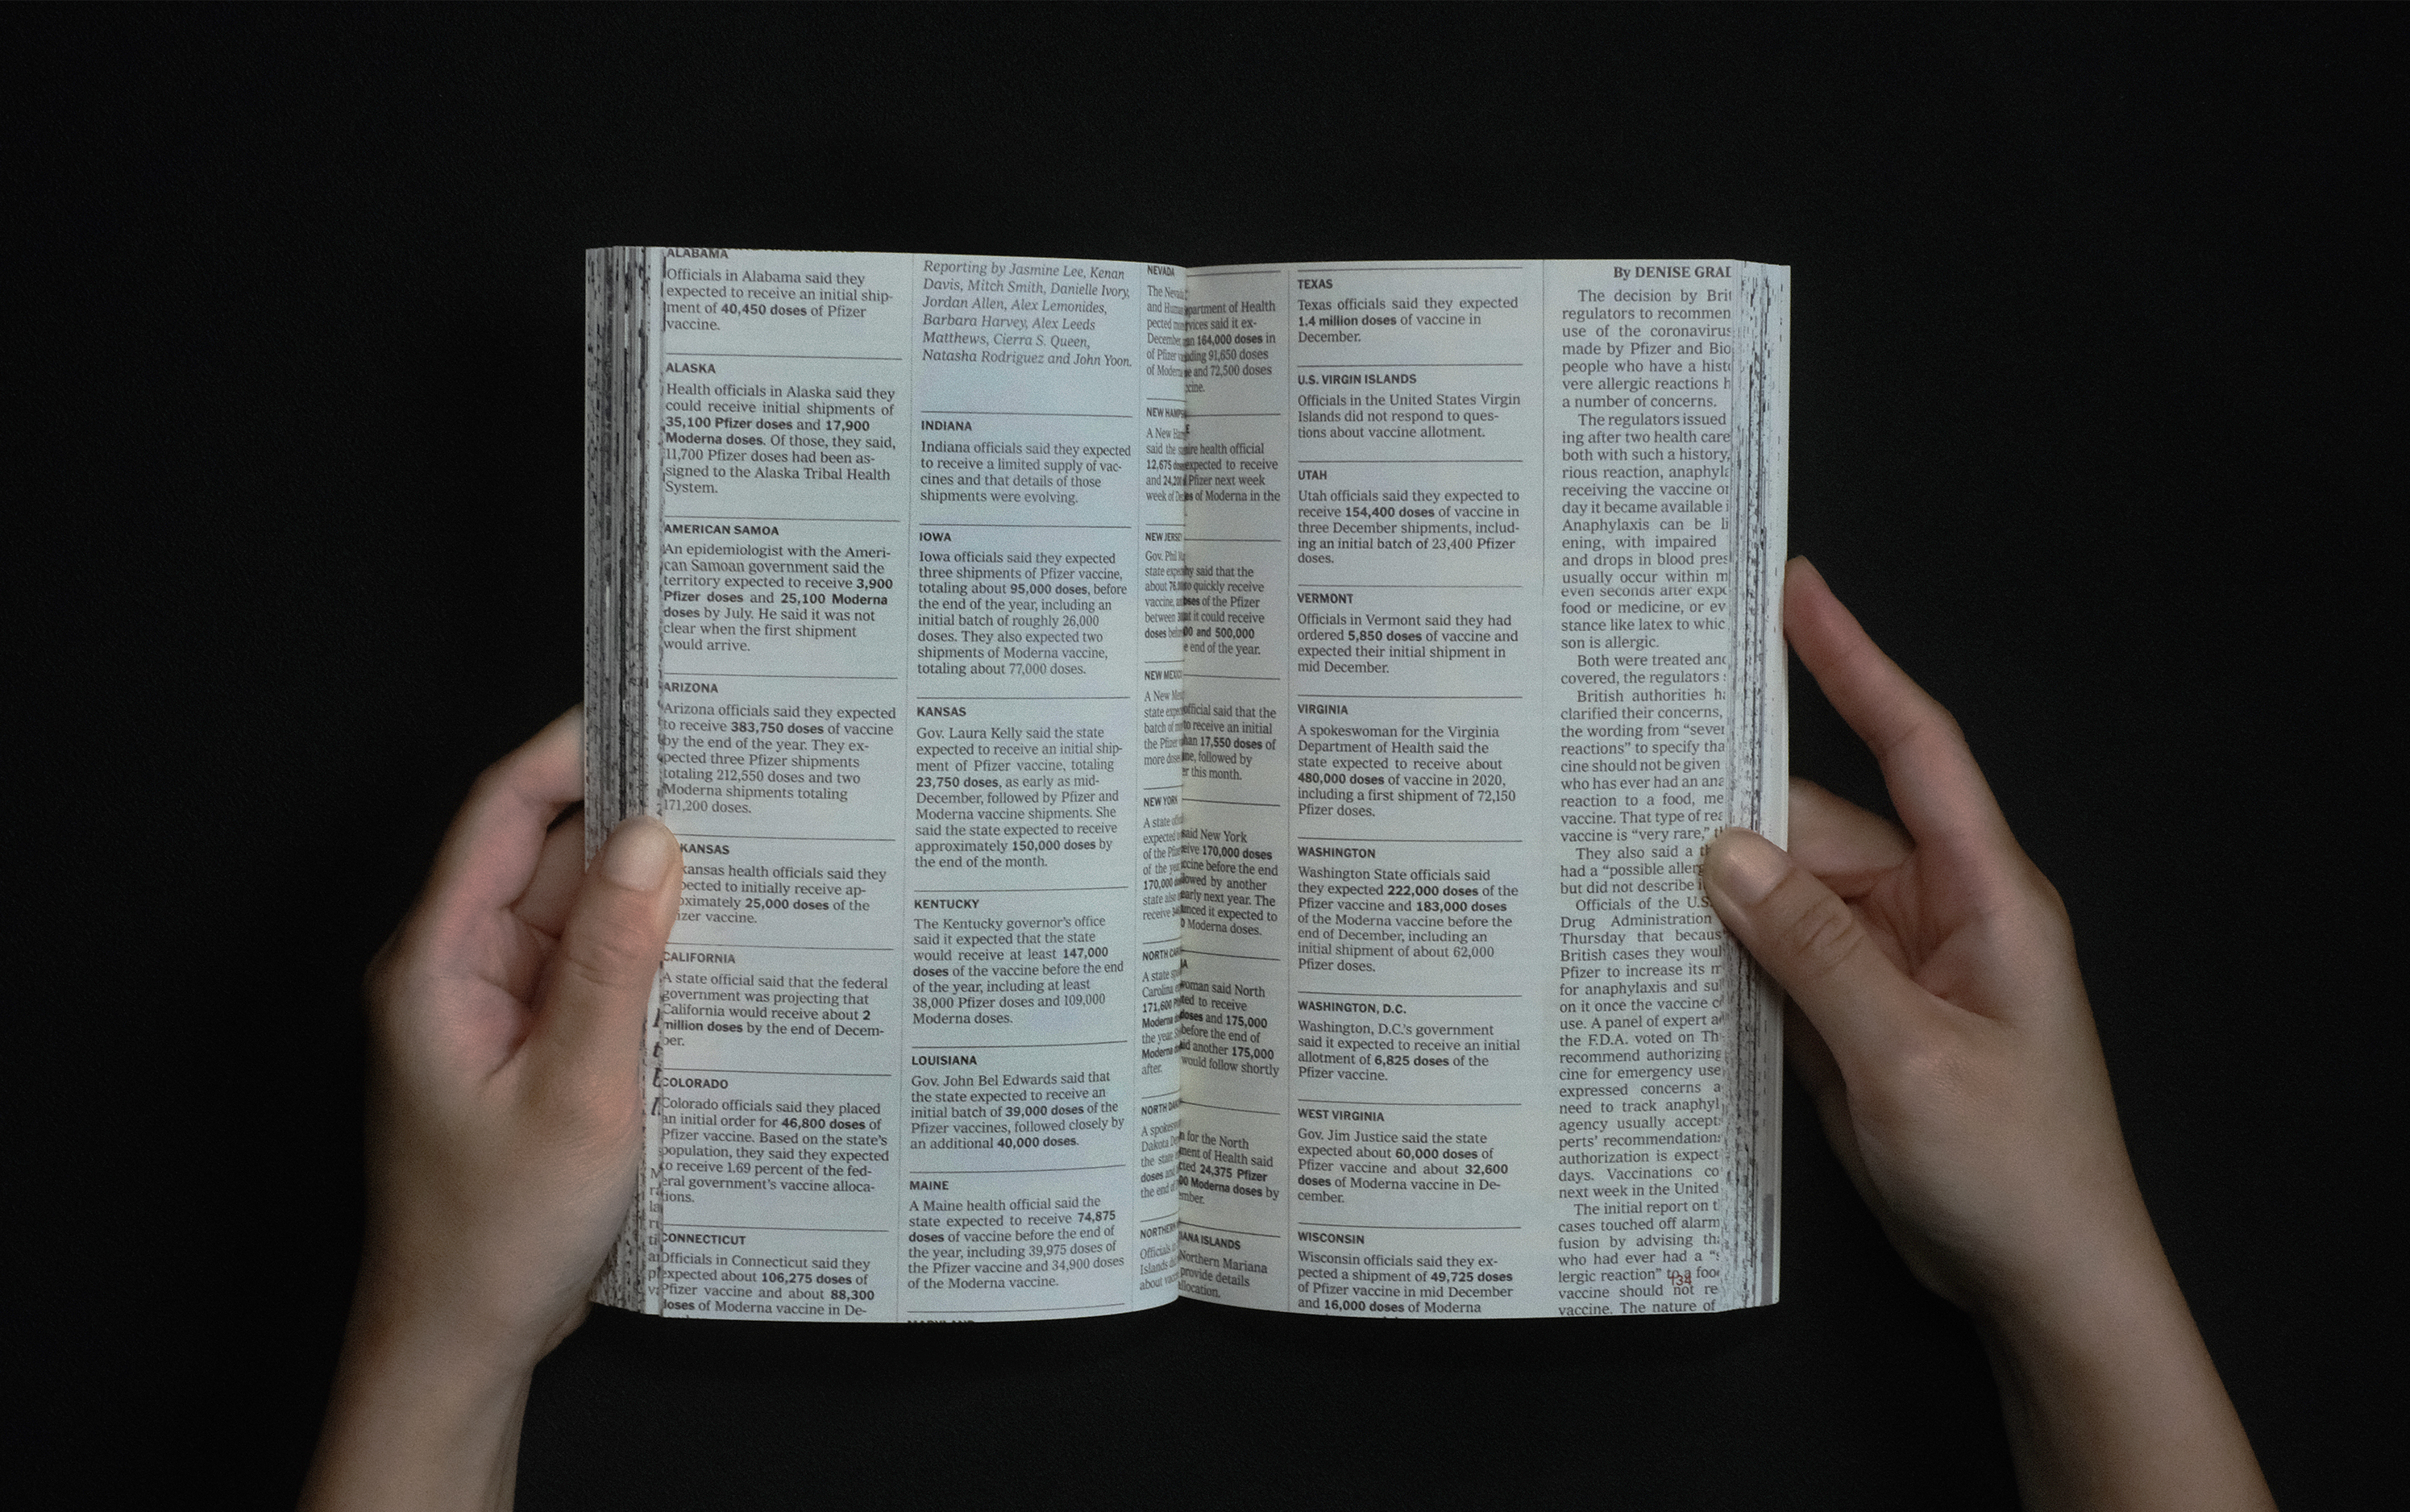 ALABAMA
Officials in Alabama said they
expected to receive an initial ship-
ment of 40,450 doses of Pfizer
vaccine.
ALASKA
Health officials in Alaska said they
could receive initial shipments of
35,100 Pfizer doses and 17,900
Moderna doses. Of those, they said,
11,700 Pfizer doses had been as-
signed to the Alaska Tribal Health
System.
AMERICAN SAMOA
An epidemiologist with the Ameri-
can Samoan government said the
territory expected to receive 3,900
Pfizer doses and 25,100 Moderna
doses by July. He said it was not
clear when the first shipment
would arrive.
ARIZONA
Arizona officials said they expected
to receive 383,750 doses of vaccine
by the end of the year. They ex-
pected three Pfizer shipments
totaling 212,550 doses and two
Moderna shipments totaling
171,200 doses.
KANSAS
kansas health officials said they
pected to initially receive ap-
oximately 25,000 doses of the
izer vaccine.
CALIFORNIA
A state official said that the federal
government was projecting that
California would receive about 2
million doses by the end of Decem-
ber.
COLORADO
Colorado officials said they placed
an initial order for 46,800 doses of
Pfizer vaccine. Based on the state's
population, they said they expected
to receive 1.69 percent of the fed-
eral government's vaccine alloca-
tions.
CONNECTICUT
Officials in Connecticut said they
expected about 106,275 doses of
Pfizer vaccine and about 88,300
doses of Moderna vaccine in De-
Reporting by Jasmine Lee, Kenan
Davis, Mitch Smith, Danielle Ivory,
Jordan Allen, Alex Lemonides,
Barbara Harvey, Alex Leeds
Matthews, Cierra S. Queen,
Natasha Rodriguez and John Yoon.
INDIANA
Indiana officials said they expected
to receive a limited supply of vac-
cines and that details of those
shipments were evolving.
IOWA
Iowa officials said they expected
three shipments of Pfizer vaccine,
totaling about 95,000 doses, before
the end of the year, including an
initial batch of roughly 26,000
doses. They also expected two
shipments of Moderna vaccine,
totaling about 77,000 doses.
KANSAS
Gov. Laura Kelly said the state
expected to receive an initial ship-
ment of Pfizer vaccine, totaling
23,750 doses, as early as mid-
December, followed by Pfizer and
Moderna vaccine shipments. She
said the state expected to receive
approximately 150,000 doses by
the end of the month.
KENTUCKY
The Kentucky governor's office
said it expected that the state
would receive at least 147,000
doses of the vaccine before the end
of the year, including at least
38,000 Pfizer doses and 109,000
Moderna doses.
LOUISIANA
Gov. John Bel Edwards said that
the state expected to receive an
initial batch of 39,000 doses of the
Pfizer vaccines, followed closely by
an additional 40,000 doses.
MAINE
A Maine health official said the
state expected to receive 74,875
doses of vaccine before the end of
the year, including 39,975 doses of
the Pfizer vaccine and 34,900 doses
of the Moderna vaccine.
MARYLAND
NEVADA
The
and
partment of Health
vices said it ex-
164,000 doses in
91,650 doses
and 72,500 doses
A New
said the
health official
12,675
expected to receive
Pfizer next week
of Moderna in the
NEW JERSEY
Gov. Phil
said that the
quickly receive
of the Pfizer
it could receive
and 500,000
end of the year.
A New
official said that the
to receive an initial
17,550 doses of
followed by
this month.
NEW YORK
A state
said New York
170,000 doses
before the end
by another
early next year. The
it expected to
Moderna doses.
A state
woman said North
to receive
doses and 175,000
before the end of
another 175,000
would follow shortly
after.
for the North
ment of Health said
24,375 Pfizer
Moderna doses by
ISLANDS
Northern Mariana
provide details
TEXAS
Texas officials said they expected
1.4 million doses of vaccine in
December.
U.S. VIRGIN ISLANDS
Officials in the United States Virgin
Islands did not respond to ques-
tions about vaccine allotment.
UTAH
Utah officials said they expected to
receive 154,400 doses of vaccine in
three December shipments, includ-
ing an initial batch of 23,400 Pfizer
doses.
VERMONT
Officials in Vermont said they had
ordered 5,850 doses of vaccine and
expected their initial shipment in
mid December.
VIRGINIA
A spokeswoman for the Virginia
Department of Health said the
state expected to receive about
480,000 doses of vaccine in 2020,
including a first shipment of 72,150
Pfizer doses.
WASHINGTON
Washington State officials said
they expected 222,000 doses of the
Pfizer vaccine and 183,000 doses
of the Moderna vaccine before the
end of December, including an
initial shipment of about 62,000
Pfizer doses.
WASHINGTON, D.C.
Washington, D.C.'s government
said it expected to receive an initial
allotment of 6,825 doses of the
Pfizer vaccine.
WEST VIRGINIA
Gov. Jim Justice said the state
expected about 60,000 doses of
Pfizer vaccine and about 32,600
doses of Moderna vaccine in De-
cember.
WISCONSIN
Wisconsin officials said they ex-
pected a shipment of 49,725 doses
of Pfizer vaccine in mid December
and 16,000 doses of Moderna
By DENISE GRAD
The decision by Brit
regulators to recommen
use of the coronavirus
made by Pfizer and Bio
people who have a hist
vere allergic reactions h
a number of concerns.
The regulators issued
ing after two health care
both with such a history,
rious reaction, anaphyla
receiving the vaccine on
day it became available i
Anaphylaxis can be li
ening, with impaired
and drops in blood pres
usually occur within m
even seconds after expo
food or medicine, or ev
stance like latex to whic
son is allergic.
Both were treated and
covered, the regulators
British authorities ha
clarified their concerns,
the wording from "sever
reactions" to specify tha
cine should not be given
who has ever had an ana
reaction to a food, me
vaccine. That type of rea
vaccine is "very rare," t
They also said a th
had a "possible allerg
but did not describe i
Officials of the U.S.
Drug Administration
Thursday that becaus
British cases they woul
Pfizer to increase its m
for anaphylaxis and su
on it once the vaccine c
use. A panel of expert a
the F.D.A. voted on Th
recommend authorizing
cine for emergency use
expressed concerns a
need to track anaphyl
agency usually accept
perts' recommendation
authorization is expect
days. Vaccinations co
next week in the United
The initial report on t
cases touched off alarm
fusion by advising tha
who had ever had a "s
lergic reaction" to a foo
vaccine should not re
vaccine. The nature of
134